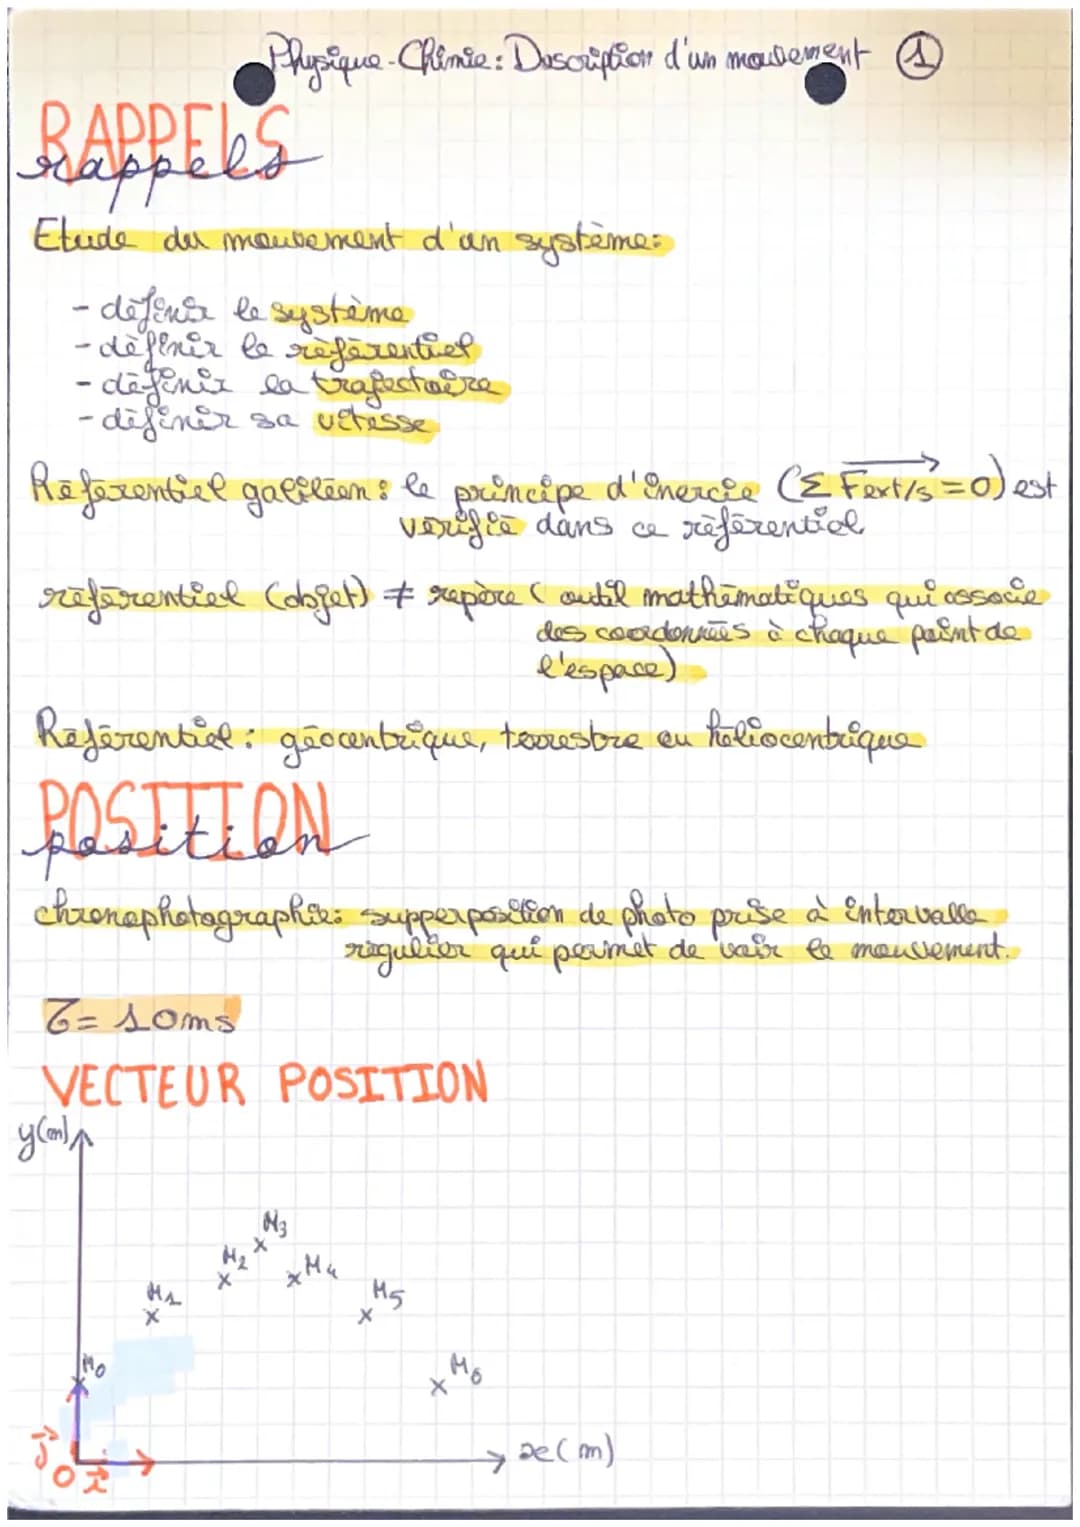 Physique-Chimie: Description d'un mouvement ①
RAPPELS
rappels
Etude du mouvement d'un système:
- définir le système
- définir le référentiel
- définir la trajectoire
- définir sa vitesse
Référentiel galiléen: le principe d'inercie (Σ Fext/s = 0) est
vérifié dans ce référentiel
référentiel (objet) ≠ repère ( outil mathématiques qui associe
des coordonnées à chaque point de
l'espace)
Référentiel: géocentrique, terrestre ou héliocentrique
POSITION
position
chronophotographie: supperposition de photo prise à intervalle
régulier qui permet de voir le mouvement.
τ= 10ms
VECTEUR POSITION
y(m)
M3
M2
M4
M1
M5
M0
M6
j
x(m)
O i